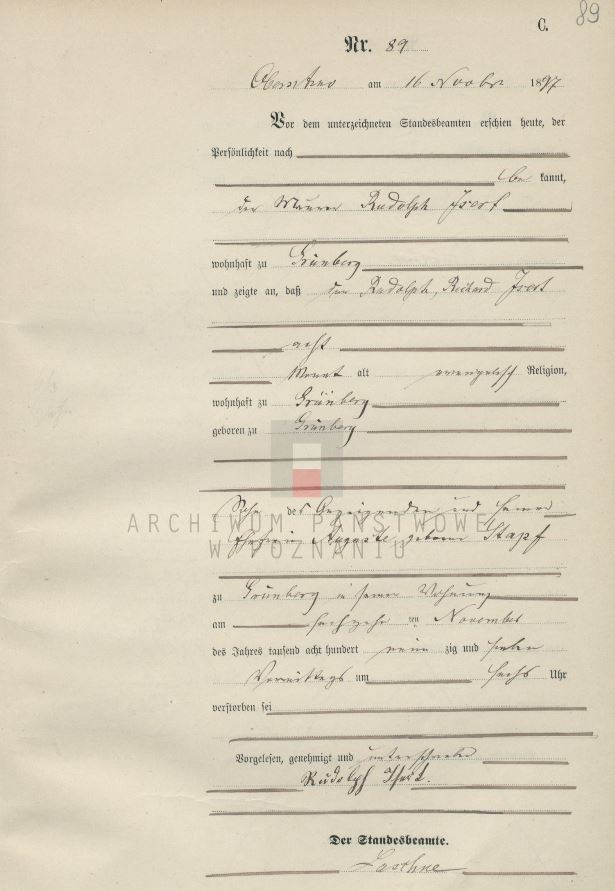 89
C.
Nr. 89
am 16 Novbr 1897
Vor dem unterzeichneten Standesbeamten erschien heute, der
Persönlichkeit nach
be kannt,
der Maurer Rudolph Isert
wohnhaft zu Grünberg
und zeigte an, daß der Rudolph, Richard Isert
acht
Monat alt evangelisch Religion,
wohnhaft zu Grünberg
geboren zu Grünberg
Sohn des Anzeigenden und seiner
ARCHIWUM PAŃSTWOWE
W POZNANIU
Ehefrau Auguste geborne Stapf
zu Grünberg in seiner Wohnung
am sechzehn ten November
des Jahres tausend acht hundert neun zig und sieben
Vormittags um sechs Uhr
verstorben sei
Vorgelesen, genehmigt und unterschrieben
Rudolph Isert.
Der Standesbeamte.